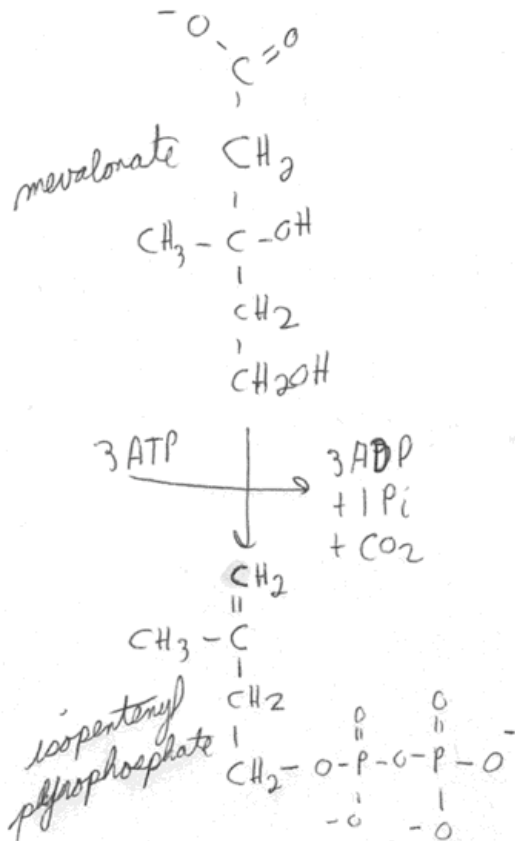 - O O
C
mevalonate CH2
CH3 - C - OH
CH2
CH2OH
3 ATP
3ADP
+ 1 Pi
+ CO2
CH2
CH3 - C
isopentenyl
CH2
pyrophosphate
O O
CH2 - O - P - O - P - O -
- O - O